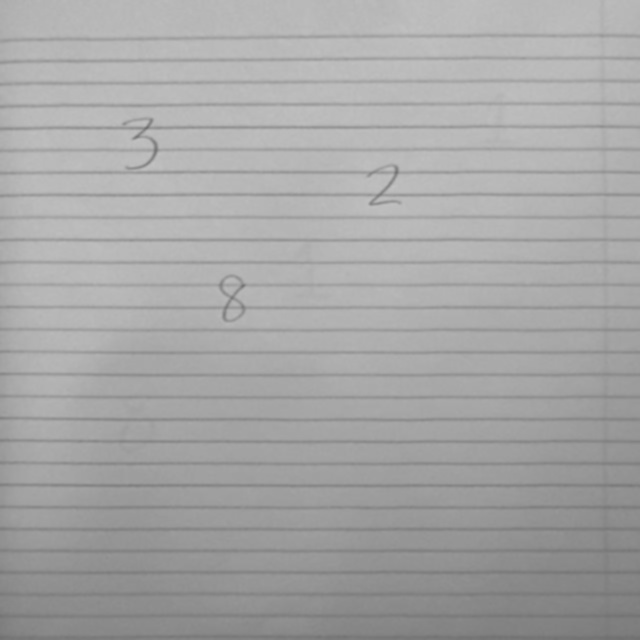 3
2
8